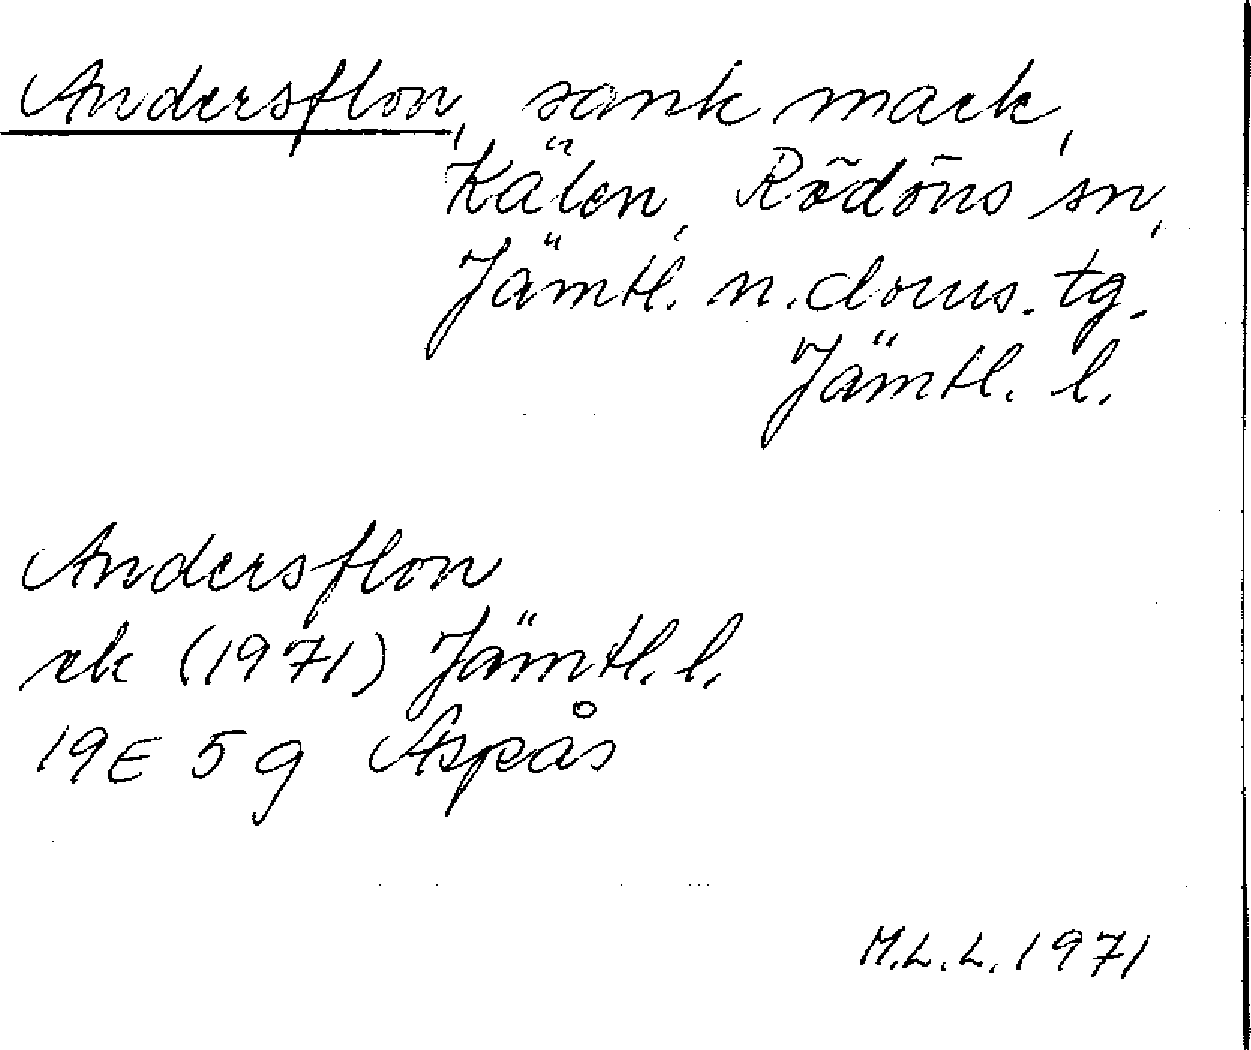 Andersflon, sank mark,
Kälen, Rödöns sn,
Jämtl. n. doms. tg.
Jämtl. l.
Andersflon
ek (1971) Jämtl. l.
19E 5g Aspås
M.L.L. 1971